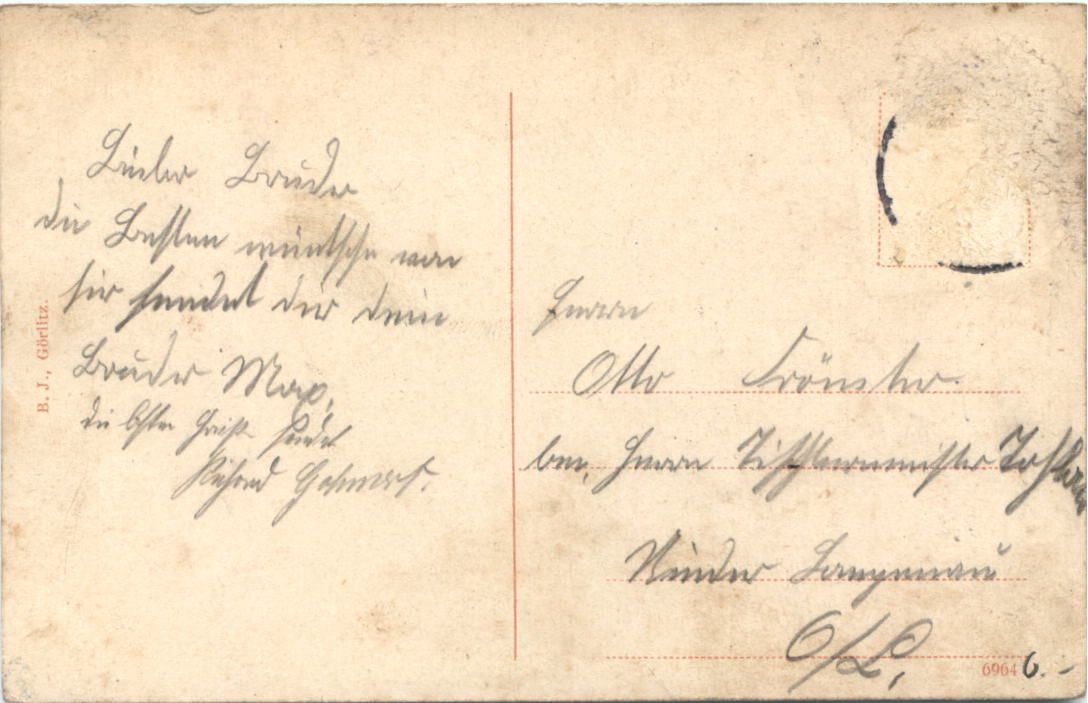 Lieber Bruder
die Besten wüntsche von
hir sendet dir dein
Bruder Max.
die besten Grüße sendet
Richard
B. J., Görlitz.
Herrn
Otto
bei, Herrn Tischlermeister
Nieder Langenau
O/L.
6964 6.-